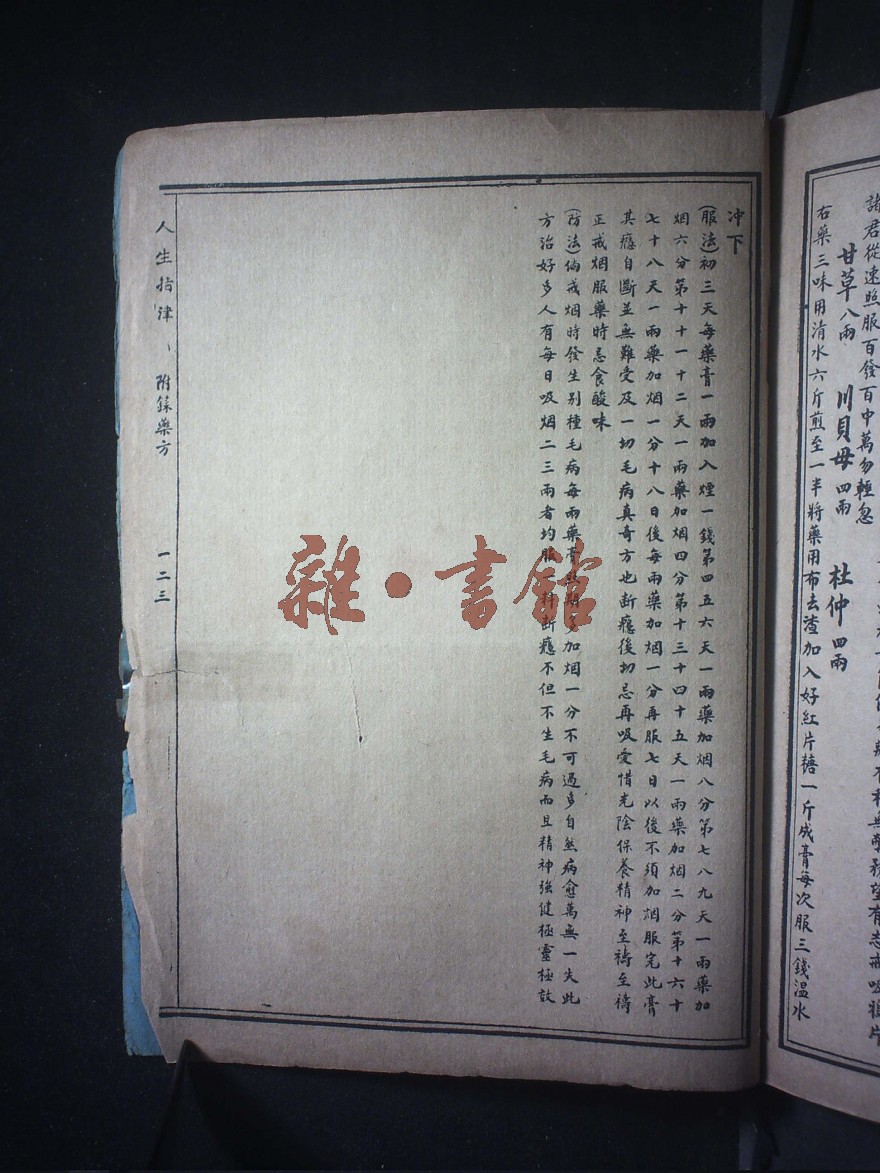 諸君從速照服百發百中萬勿輕忽
甘草八兩 川貝母四兩 杜仲四兩
右藥三味用清水六斤煎至一半將藥用布去渣加入好紅片糖一斤成膏每次服三錢溫水
冲下
(服法)初三天每藥膏一兩加入煙一錢第四五六天一兩藥加烟八分第七八九天一兩藥加
烟六分第十十一十二天一兩藥加烟四分第十三十四十五天一兩藥加烟二分第十六十
七十八天一兩藥加烟一分十八日後每兩藥加烟一分再服七日以後不須加烟服完此膏
其癮自斷並無難受及一切毛病真奇方也断癮後切忌再吸愛惜光陰保養精神至禱至禱
正戒烟服藥時忌食酸味
(防法)倘戒烟時發生别種毛病每兩藥膏多加烟一分不可過多自然病愈萬無一失此
方治好多人有每日吸烟二三兩者均服断癮不但不生毛病而且精神強健極靈極效
人生指津 附錄藥方 一二三
雜·書館